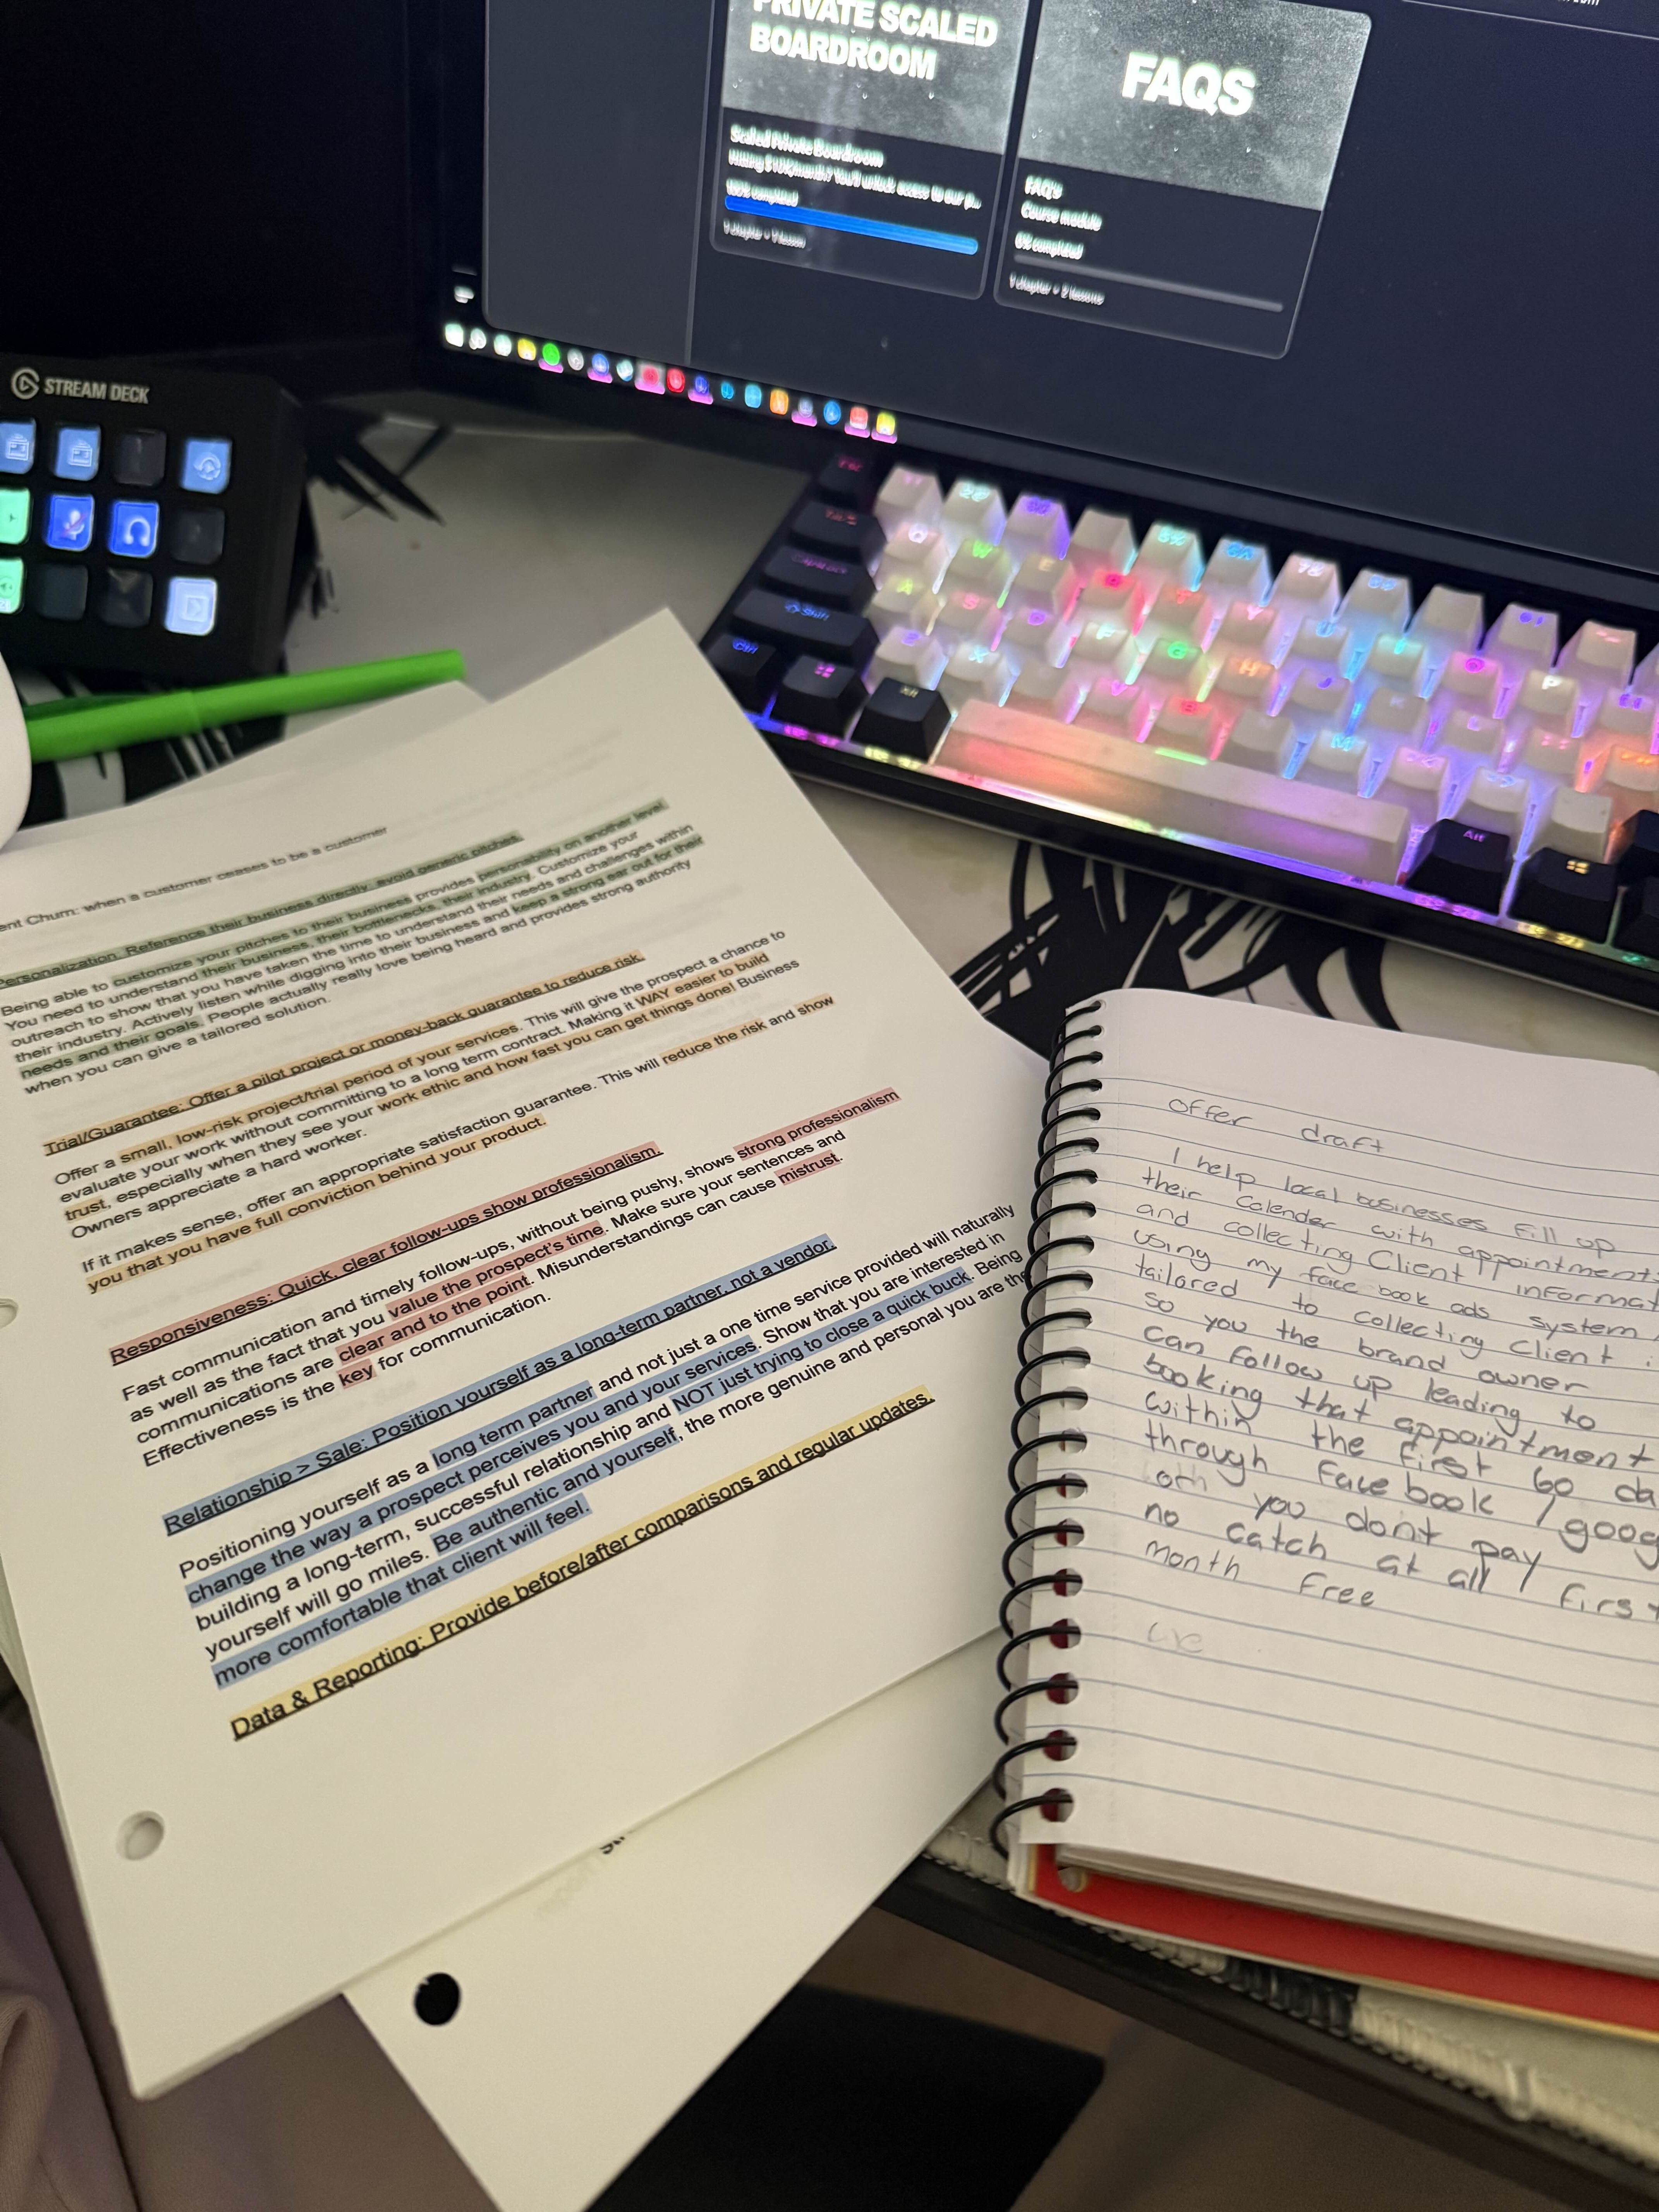 PRIVATE SCALED
BOARDROOM
Scaled Private Boardroom
Hitting $10K/month? You'll unlock access to our p...
100% completed
1 chapter • 1 lesson
FAQS
FAQ's
Course module
0% completed
1 chapter • 2 lessons
STREAM DECK
ent Churn: when a customer ceases to be a customer
Personalization. Reference their business directly, avoid generic pitches.
Being able to customize your pitches to their business provides personability on another level.
You need to understand their business, their bottlenecks, their industry. Customize your
outreach to show that you have taken the time to understand their needs and challenges within
their industry. Actively listen while digging into their business and keep a strong ear out for their
needs and their goals. People actually really love being heard and provides strong authority
when you can give a tailored solution.
Trial/Guarantee: Offer a pilot project or money-back guarantee to reduce risk.
Offer a small, low-risk project/trial period of your services. This will give the prospect a chance to
evaluate your work without committing to a long term contract. Making it WAY easier to build
trust, especially when they see your work ethic and how fast you can get things done! Business
Owners appreciate a hard worker.
If it makes sense, offer an appropriate satisfaction guarantee. This will reduce the risk and show
you that you have full conviction behind your product.
Responsiveness: Quick, clear follow-ups show professionalism.
Fast communication and timely follow-ups, without being pushy, shows strong professionalism
as well as the fact that you value the prospect's time. Make sure your sentences and
communications are clear and to the point. Misunderstandings can cause mistrust.
Effectiveness is the key for communication.
Relationship > Sale: Position yourself as a long-term partner, not a vendor.
Positioning yourself as a long term partner and not just a one time service provided will naturally
change the way a prospect perceives you and your services. Show that you are interested in
building a long-term, successful relationship and NOT just trying to close a quick buck. Being
yourself will go miles. Be authentic and yourself, the more genuine and personal you are the
more comfortable that client will feel.
Data & Reporting: Provide before/after comparisons and regular updates.
offer draft
I help local businesses fill up
their calender with appointments
and collecting Client informat
using my face book ads system
tailored to collecting Client i
so you the brand owner
can follow up leading to
booking that appointment
within the first 60 da
through Facebook / goog
or you dont pay
no catch at all / first
month free